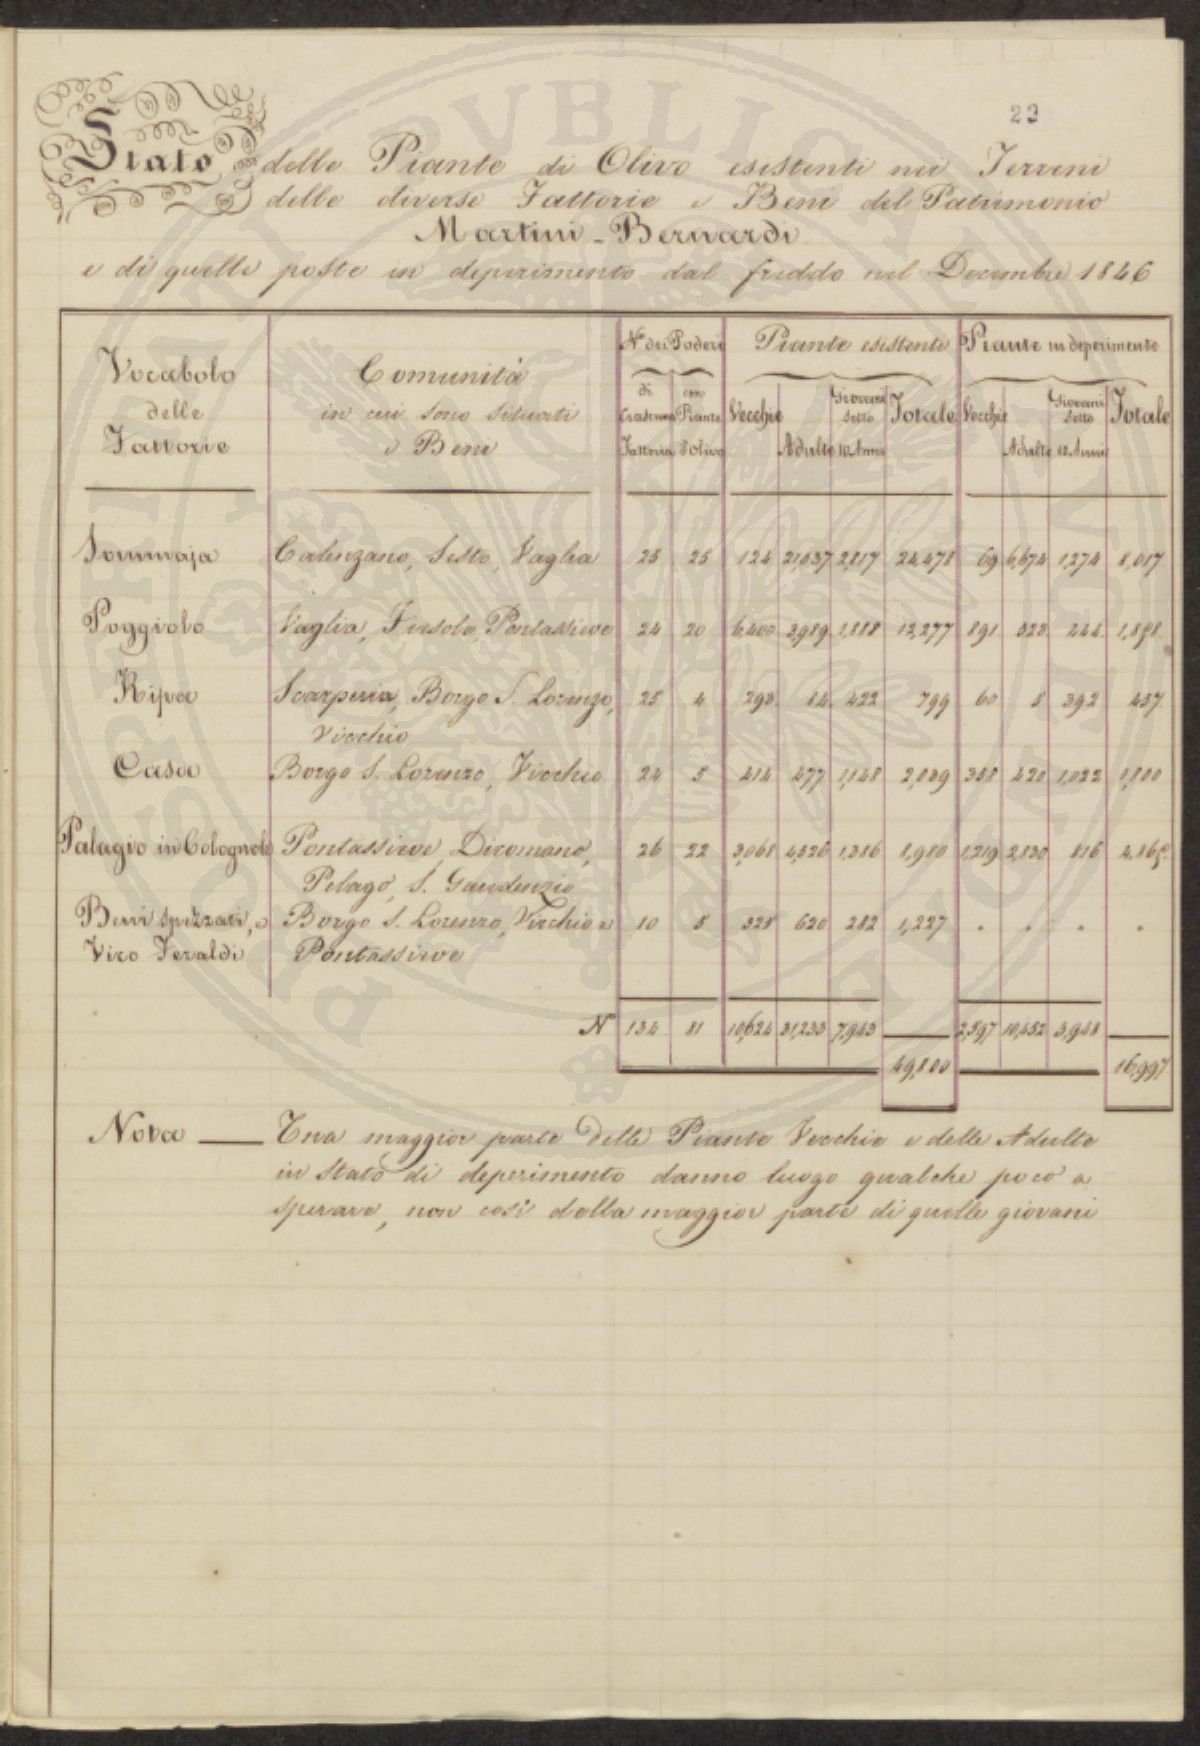 23
Stato delle Piante di Olivo esistenti nei Terreni
delle diverse Fattorie e Beni del Patrimonio
Martini-Bernardi
e di quelle poste in deperimento dal freddo nel Decembre 1846
Vocabolo delle Fattorie
Comunità in cui sono situati i Beni
N° dei Poderi
di ciascuna Fattoria
con Piante d'Olivo
Piante esistenti
Vecchie Adulte Giovani sotto 10 Anni Totale
Piante in deperimento
Vecchie Adulte Giovani sotto 10 Anni Totale
Sommaja Calenzano, Sesto, Vaglia 25 25 124 21,537 2,817 24,478 69 6,674 1,274 8,017
Poggiolo Vaglia, Fiesole, Pontassieve 24 20 6,400 3,989 1,888 12,277 891 523 444 1,858
Ripa Scarperia, Borgo S. Lorenzo, 25 4 293 84 422 799 60 5 392 457
Vicchio
Casa Borgo S. Lorenzo, Vicchio 24 5 414 477 1,148 2,039 358 420 1,022 1,800
Palagio in Colognole Pontassieve, Dicomano, 26 22 3,068 4,526 1,386 8,980 1,219 2,830 816 4,865
Pelago, S. Gaudenzio
Beni spezzati, e Borgo S. Lorenzo, Vicchio e 10 5 325 620 282 1,227 . . . .
Vico Feraldi Pontassieve
N° 134 81 10,624 31,233 7,943 2,597 10,452 3,948
49,800 16,997
Nota — Una maggior parte delle Piante Vecchie e delle Adulte
in stato di deperimento danno luogo qualche poco a
sperare, non così della maggior parte di quelle giovani